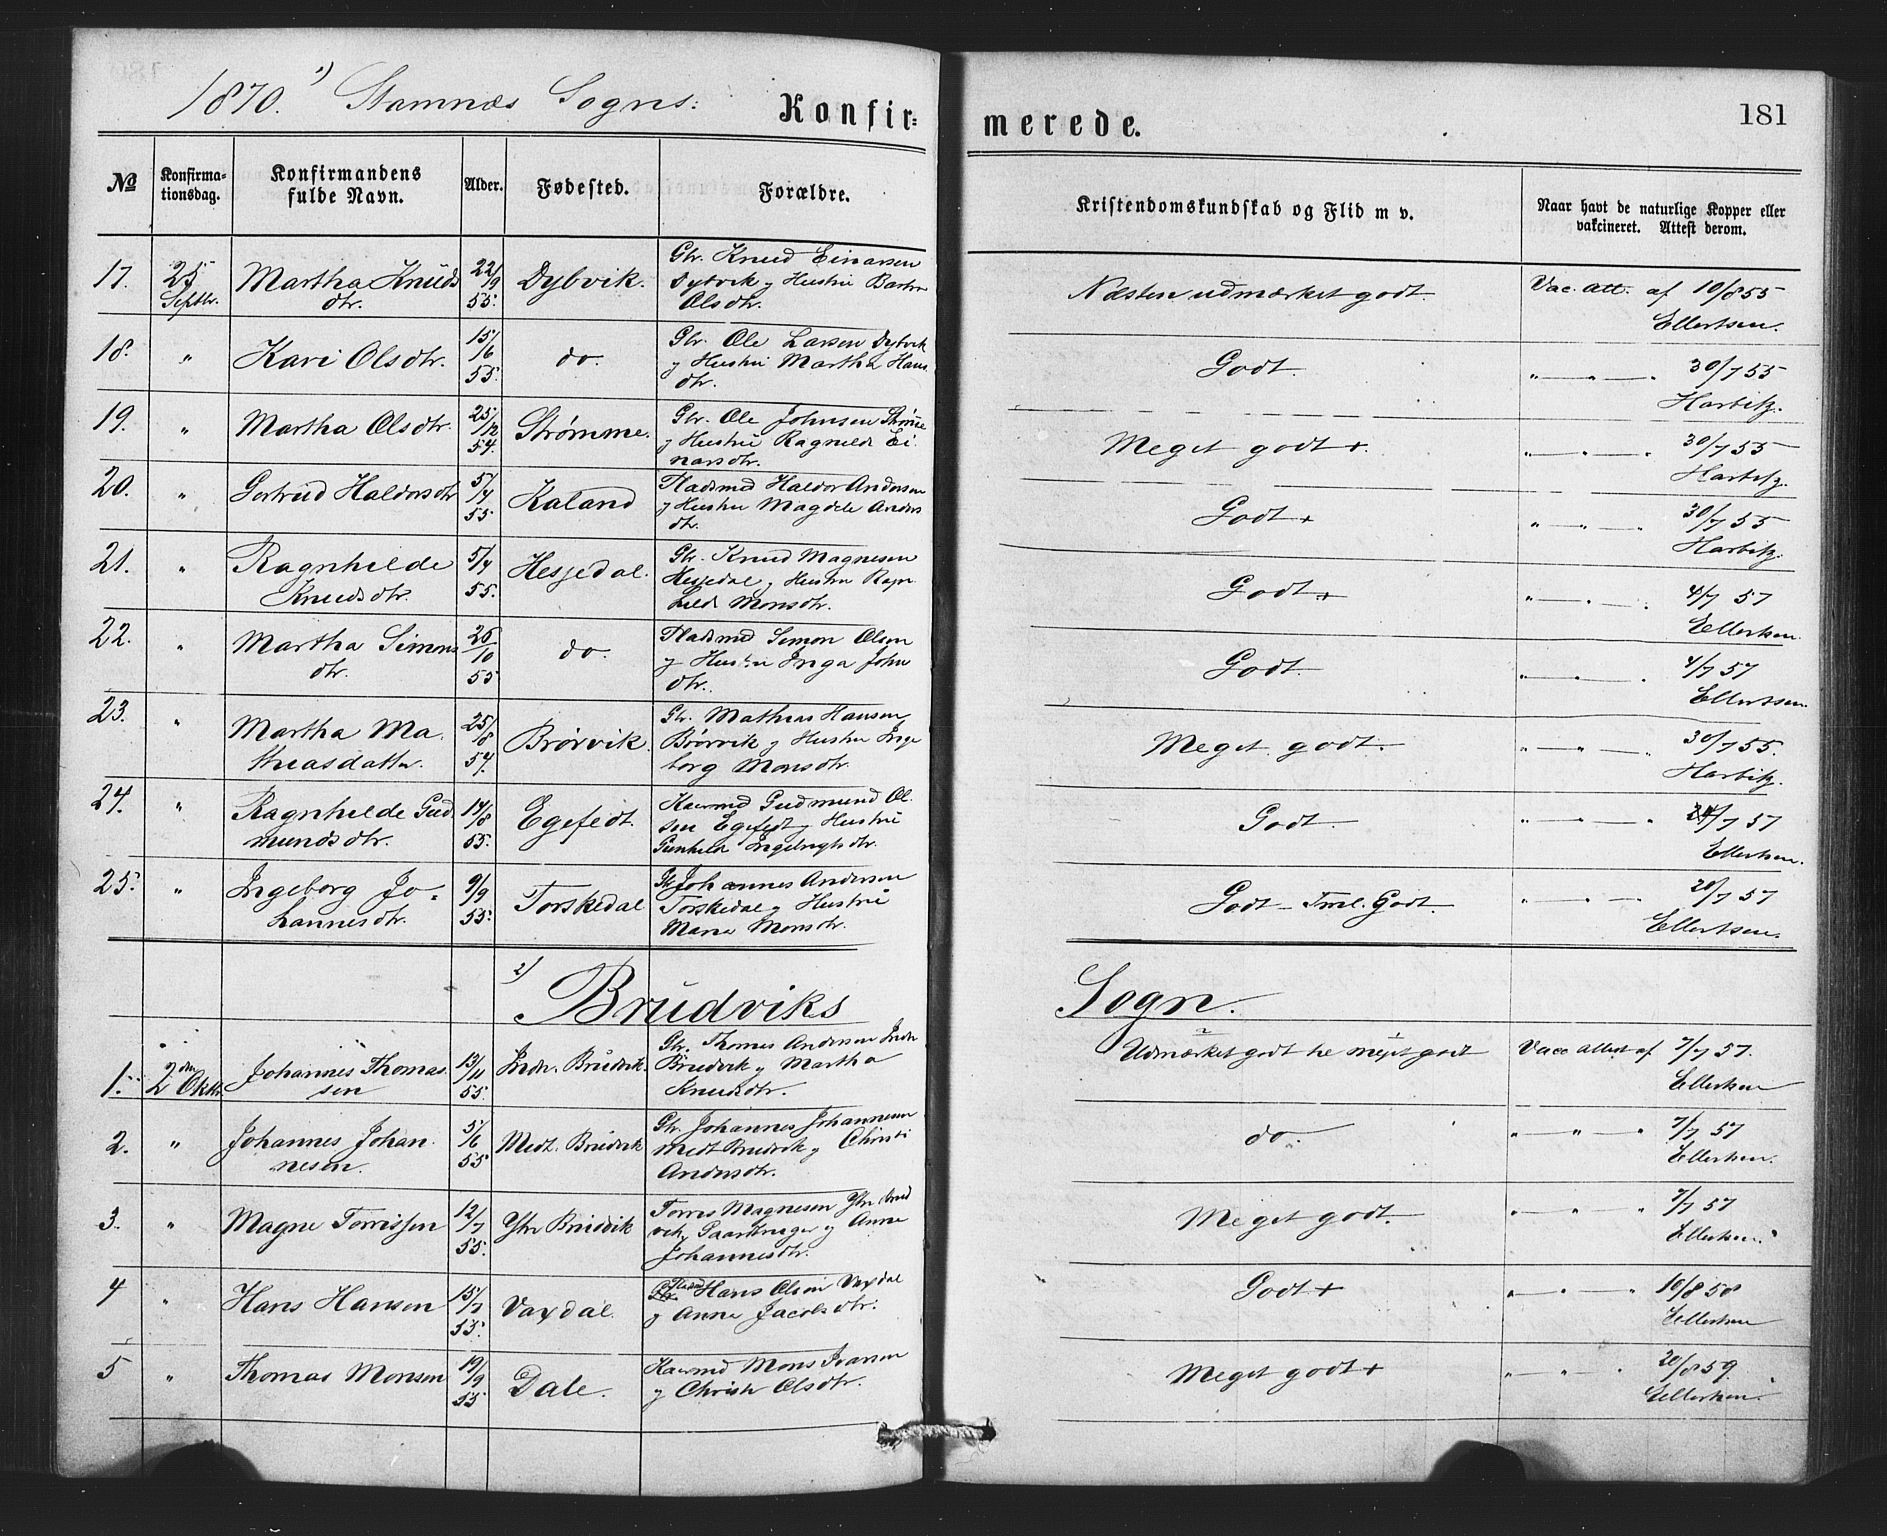 1870. 1) Stamnæs Sogns: Konfir=
merede. 181
No
Konfirma=
tionsdag.
Konfirmandens
fulde Navn.
Alder.
Fødested.
Forældre.
Kristendomskundskab og Flid m v.
Naar havt de naturlige Kopper eller
vakcineret. Attest derom.
17. 25 Septbr. Martha Knuds
dtr. 22/9 55. Dybvik.
Gbr. Knud Einarsen
Dybvik og Hustru
Olsdtr.
Næsten udmærket godt. Vac. att. af 10/8 55
Ellertsen.
18. " Kari Olsdtr. 15/6 55. do.
Gbr. Ole Larsen Dybvik
og Hustru Martha Hans
dtr.
Godt. " — " — " 30/7 55
Harbitz.
19. " Martha Olsdtr. 25/12 54. Strømme.
Gbr. Ole Johnsen Strømme
og Hustru Ragnilde Ei
narsdtr.
Meget godt +. " — " — " 30/7 55
Harbitz.
20. " Gertrud Haldorsdtr 5/4 55 Kaland
Pladsmd Haldor Andersen
og Hustru Magdele Anders
dtr.
Godt + " — " — " 30/7 55
Harbitz.
21. " Ragnhilde
Knudsdtr. 5/4 55. Hesjedal.
Gbr. Knud Magnesen
Hesjedal og Hustru Ragn
hild Monsdtr.
Godt + " — " — " 4/7 57
Ellertsen.
22. " Martha Simons
dtr. 26/10 55 do.
Pladsmd Simon Olsen
og Hustru Inga John
dtr.
Godt. " — " — " 4/7 57
Ellertsen.
23. " Martha Ma
thiasdatter. 25/8 54. Brørvik.
Gbr. Mathias Hansen
Brørvik og Hustru Inge
borg Monsdtr.
Meget godt. " — " — " 30/7 55.
Harbitz.
24. " Ragnhilde Gud
mundsdtr. 14/8 55. Egefedt.
Kaarmd Gudmund Ol
sen Egefedt og Hustru
Gunhild Ingebrigtsdtr.
Godt. " — " — " /7 57
Ellertsen.
25. " Ingeborg Jo=
hannesdtr. 9/9 55. Torskedal
Johannes Andersen
Torskedal og Hustru
Maria Monsdtr.
Godt - Godt. " — " — " 20/7 57
Ellertsen.
2) Brudviks Sogn.
1. 2den Oktbr Johannes Thomas
sen 13/11 55. Indr. Brudvik
Gbr. Thomas Andersen Indr
Brudvik og Martha
Knudsdtr.
Udmærket godt te meget godt Vacc attest af 7/7 57.
Ellertsen
2. " Johannes Johan
nesen. 5/6 55 Medt. Brudvik
Gbr. Johannes Johannesen
Medt Brudvik og Christi
Andersdtr.
do. " — " — " 7/7 57
Ellertsen.
3. " Magne Torrissen 12/7 55. Ytre Brudvik
Torris Magnesen Ytre Brud
vik, og Anna
Johannesdtr.
Meget godt. " — " — " 7/7 57
Ellertsen.
4 " Hans Hansen 15/7 55. Vaxdal.
Hans Olsen Vaxdal
og Anna Jacobsdtr.
Godt + " — " — " 10/8 58
Ellertsen
5 " Thomas Monsen 19/9 55 Dale.
Kaarmd Mons Ivarsen
og Christi Olsdtr.
Meget godt + " — " — " 20/8 59.
Ellertsen.